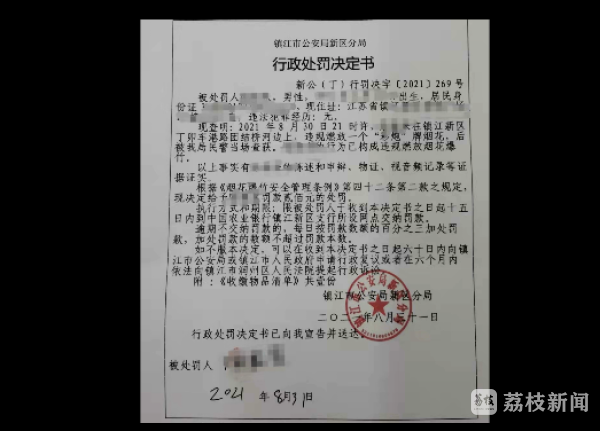 镇江市公安局新区分局
行政处罚决定书
新公（丁）行罚决字〔2021〕269号
被处罚人 ，男性， 出生，居民身
份证 现住址：江苏省镇
违法犯罪经历：无。
现查明：2021年8月30日21时许， 在镇江新区
丁卯车港路团结桥河边上，违规燃放一个" "牌烟花，后
被我局民警当场查获。 的行为已构成违规燃放烟花爆
竹。
以上事实有 的陈述和申辩、物证、视音频记录等证
据证实。
根据《烟花爆竹安全管理条例》第四十二条第二款之规定，
现决定给予 罚款贰佰元的处罚。
执行方式和期限：限被处罚人于收到本决定书之日起十五
日内到中国农业银行镇江新区支行所设网点交纳罚款。
逾期不交纳罚款的，每日按罚款数额的百分之三加处罚
款，加处罚款的数额不超过罚款本数。
如不服本决定，可以在收到本决定书之日起六十日内向镇
江市公安局或镇江市人民政府申请行政复议或者在六个月内
依法向镇江市润州区人民法院提起行政诉讼。
附：《收缴物品清单》共壹份
镇江市公安局新区分局
二〇二一年八月三十一日
行政处罚决定书已向我宣告并送达。
被处罚人
2021 年8月31日
荔枝 荔枝新闻